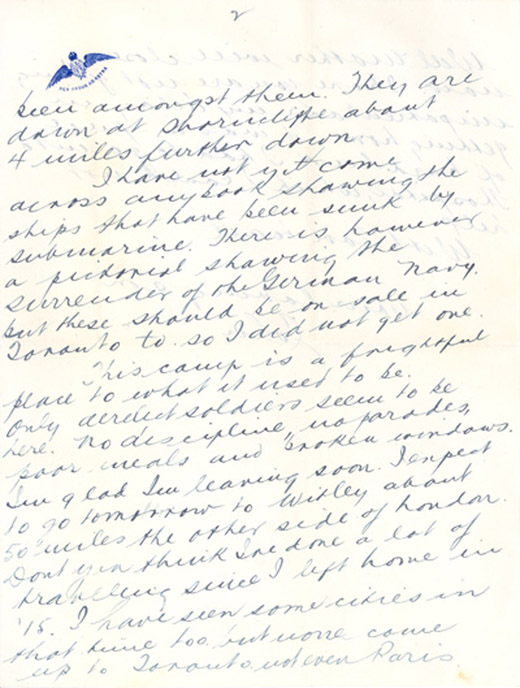 2
PER ARDUA AD ASTRA
been amongst them. They are
down at Shorncliffe about
4 miles further down.
I have not yet come
across any book showing the
ships that have been sunk by
submarine. There is however
a pictorial showing the
surrender of the German Navy.
but these should be on sale in
Toronto to. so I did not get one.
This camp is a frightful
place to what it used to be.
Only derelect soldiers seem to be
here. No discipline, no parades,
poor meals and broken windows.
I'm glad I'm leaving soon. I expect
to go tomorrow to Witley about
50 miles the other side of London.
Dont you think I've done a lot of
traveling since I left home in
'15. I have seen some cities in
that time too but none come
up to Toronto not even Paris